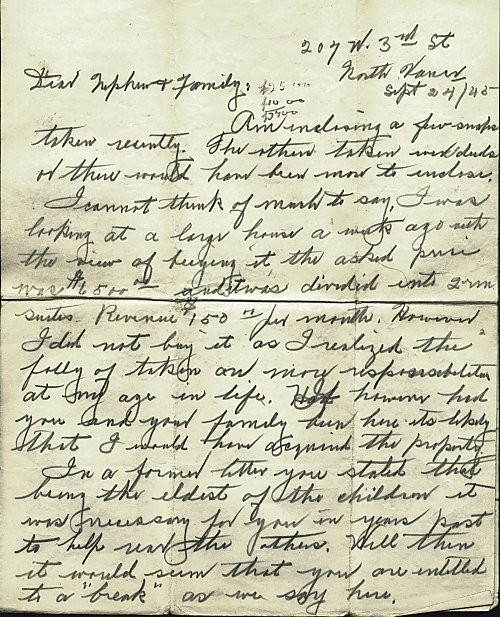 207 W. 3rd St
North Vanver
Sept 24/45
Dear Nephew & Family:
$25
10 00
Am inclosing a few snaps
taken recently. The others taken were duds
or there would have been more to inclose.
I cannot think of much to say, I was
looking at a large house a week ago with
the view of buying it the asked price
was $6500 00 and it was divided into 2 rm
suites. Revenue 150 00 per month. However
I did not buy it as I realized the
folly of taken on more responsibilities
at my age in life. However had
you and your family been here its likely
that I would have acquired the property
In a former letter you stated that
being the eldest of the children it
was necessary for you in years past
to help rear the others. Well then
it would seem that you are intitled
to a "break" as we say here.